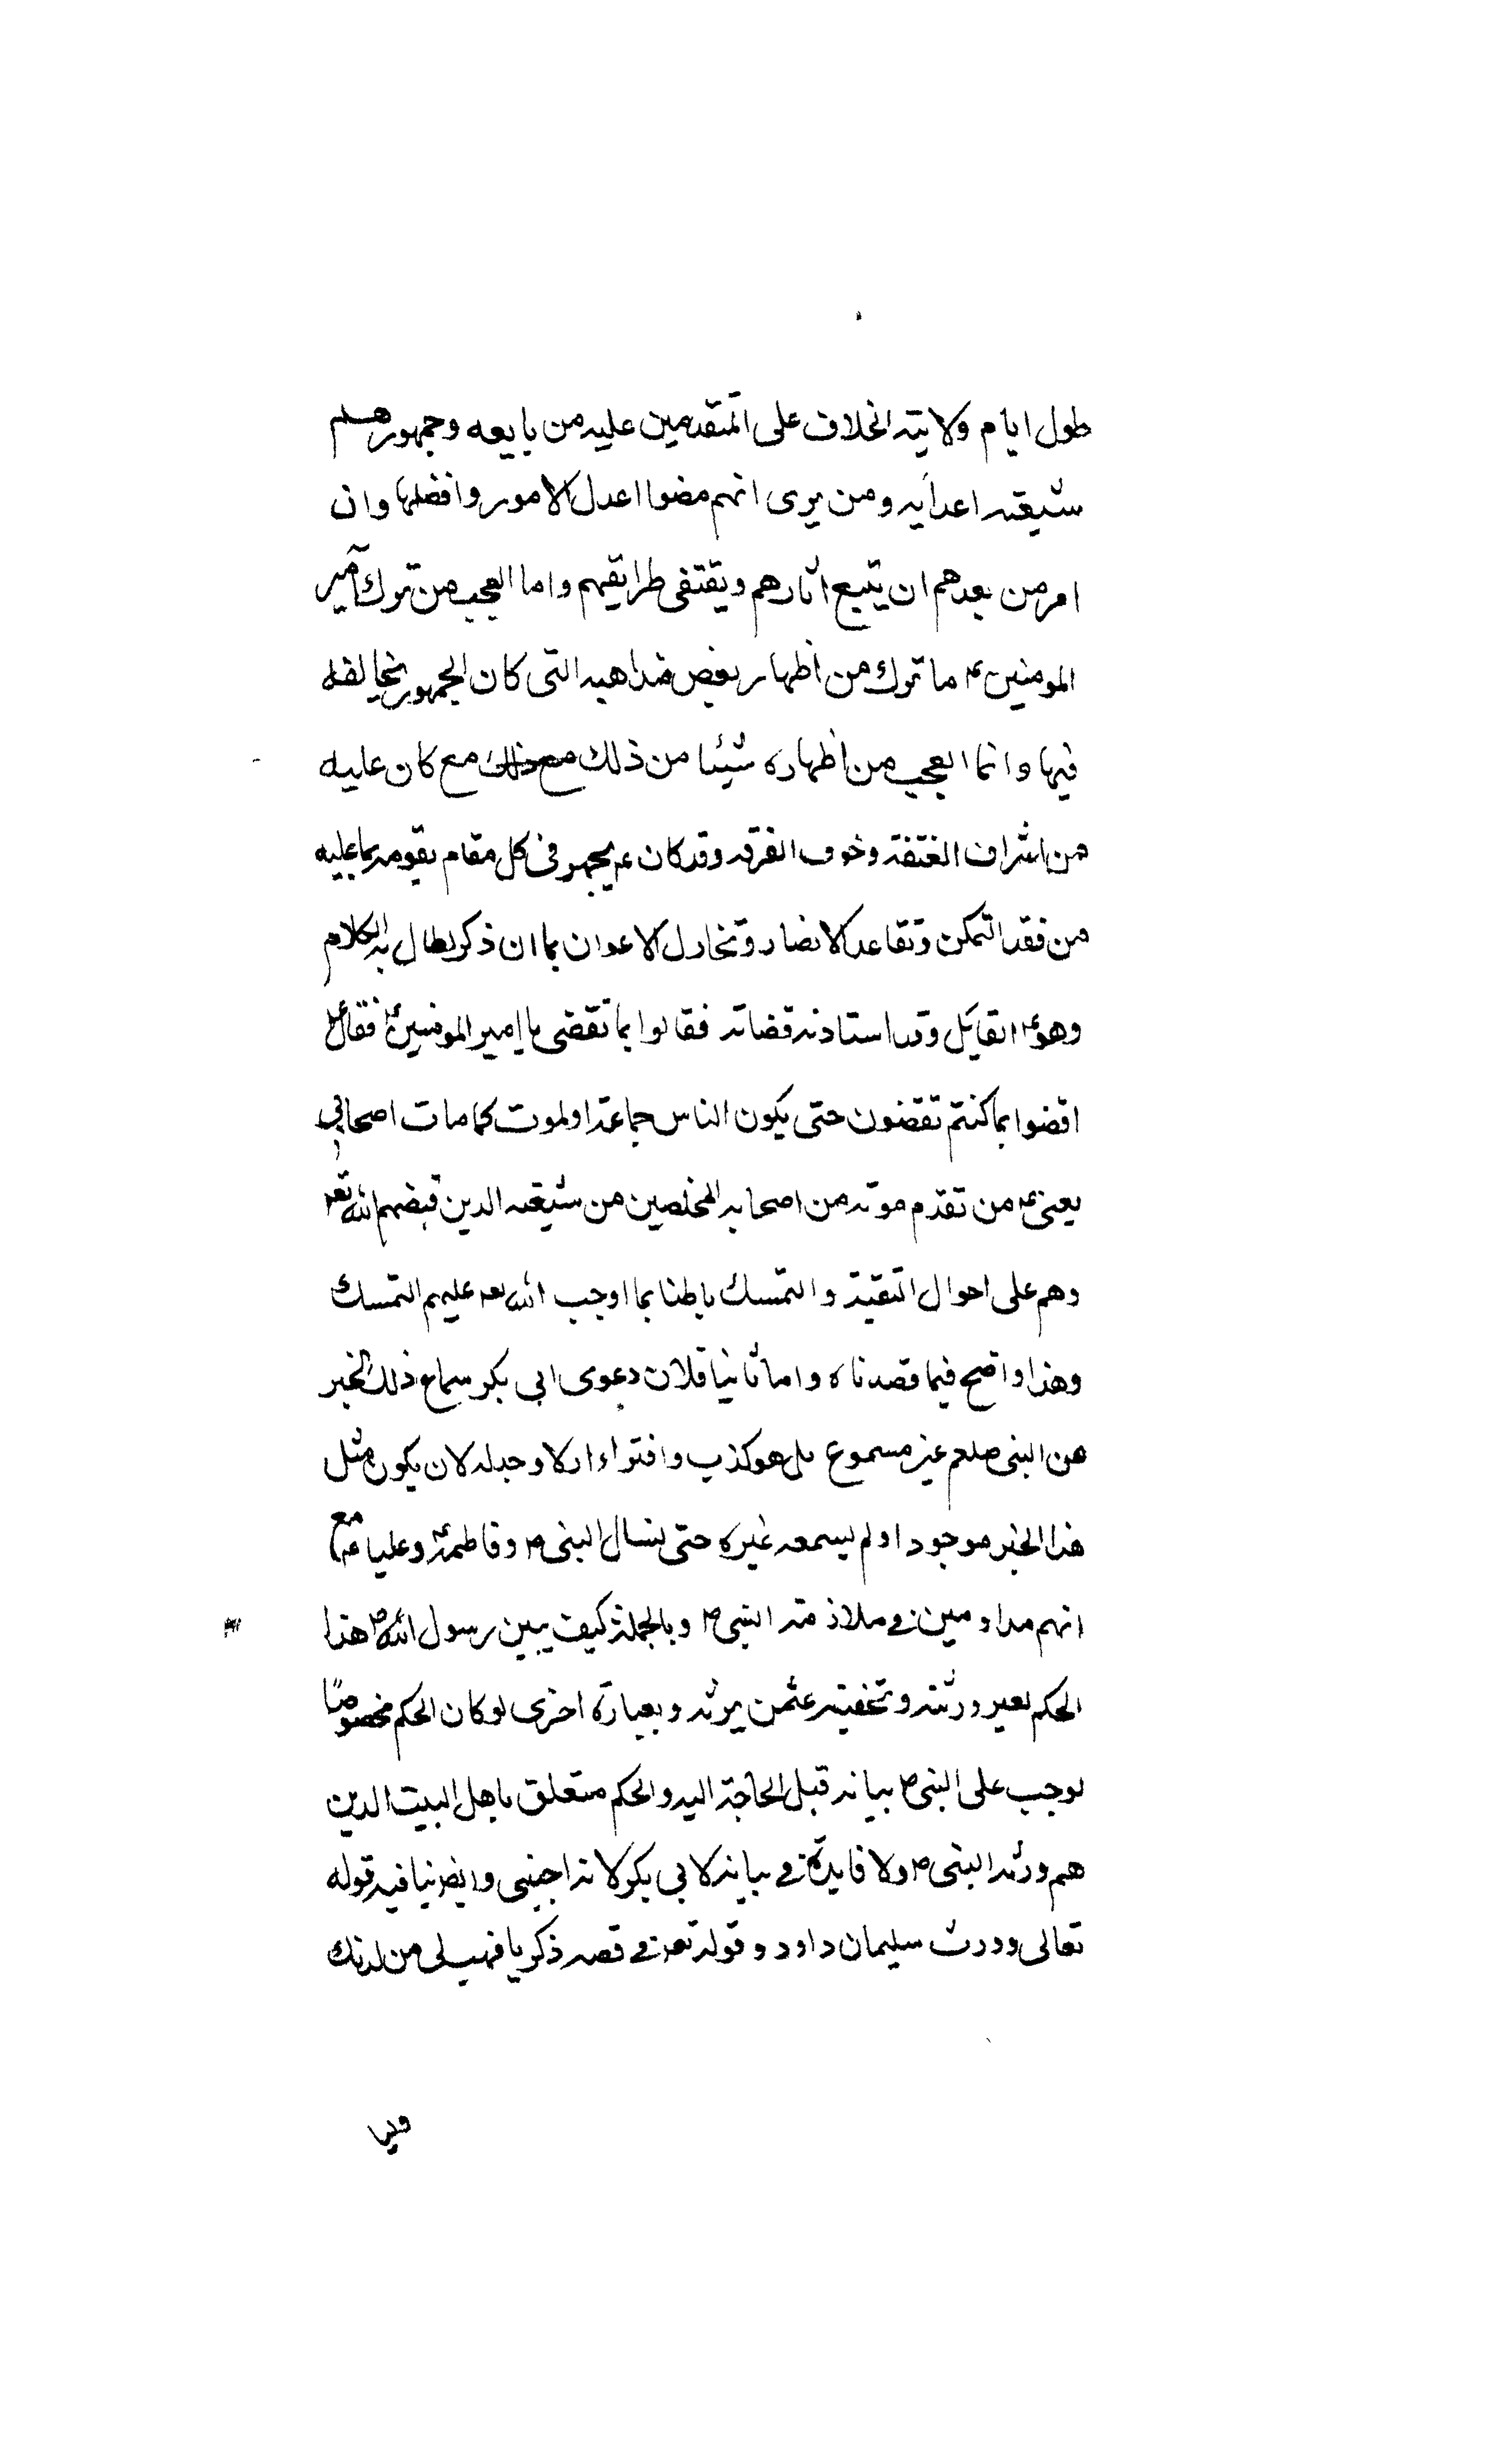 طول ايام ولايته الخلاف على المتقدمين عليه من بايعه وجمهورهم
شيعته اعدائه ومن يرى انهم مضوا اعدل الامور وافضلها وان
امر من بعدهم ان يتبع اثارهم ويقتفى طرايقهم واما العجب من ترك امير
المومنين ۴ ما ترك من اظهار بعض مذاهبه التى كان الجمهور يخالفه
فيها وانما العجب من اظهاره شيئا من ذلك مع ذلك مع كان عليه
من اشراف الفتنة وخوف الفرقه وقد كان ۴ يجهر فى كل مقام يقومه بما عليه
من فقد التمكن وتقاعد الانصار وتخاذل الاعوان بما ان ذكر يطال به الكلام
وهو ۴ القايل وقد استاذنه قضاته فقالوا بما تقضى يا امير المومنين ۴ فقال ۴
اقضوا بما كنتم تقضون حتى يكون الناس جماعة او لموت كما مات اصحابى
يعنى ۴ من تقدم موته من اصحابه المخلصين من شيعته الذين قبضهم الله تعه
وهم على احوال التقية والتمسك باطنا بما اوجب الله تعه عليهم التمسك
وهذا واضح فيما قصدناه واما ثانيا فلان دعوى ابى بكر سماع ذلك الخبر
من النبى صلعم غير مسموع بل هو كذب وافتراء اذ لا وجه له لان يكون مثل
هذا الخبر موجود او لم يسمعه غيره حتى لنسال النبى ص وفاطمة ۴ وعليا ۴ مع
انهم مداومين في ملازمته النبى ص وبالجملة كيف يبين رسول الله ص هذا
الحكم لغير ورثته وتخفيه عمن يرثه وبعبارة اخرى لو كان الحكم مخصوصًا
لوجب على النبى ص بيانه قبل الحاجة اليه والحكم متعلق باهل البيت الذين
هم ورثه النبى ص ولا فايدة في بيانه لابى بكر لانه اجنبى وايضا ينافيه قوله
تعالى وورث سليمان داود وقوله تعه في قصه ذكريا فهب لى من لدنك
وليا